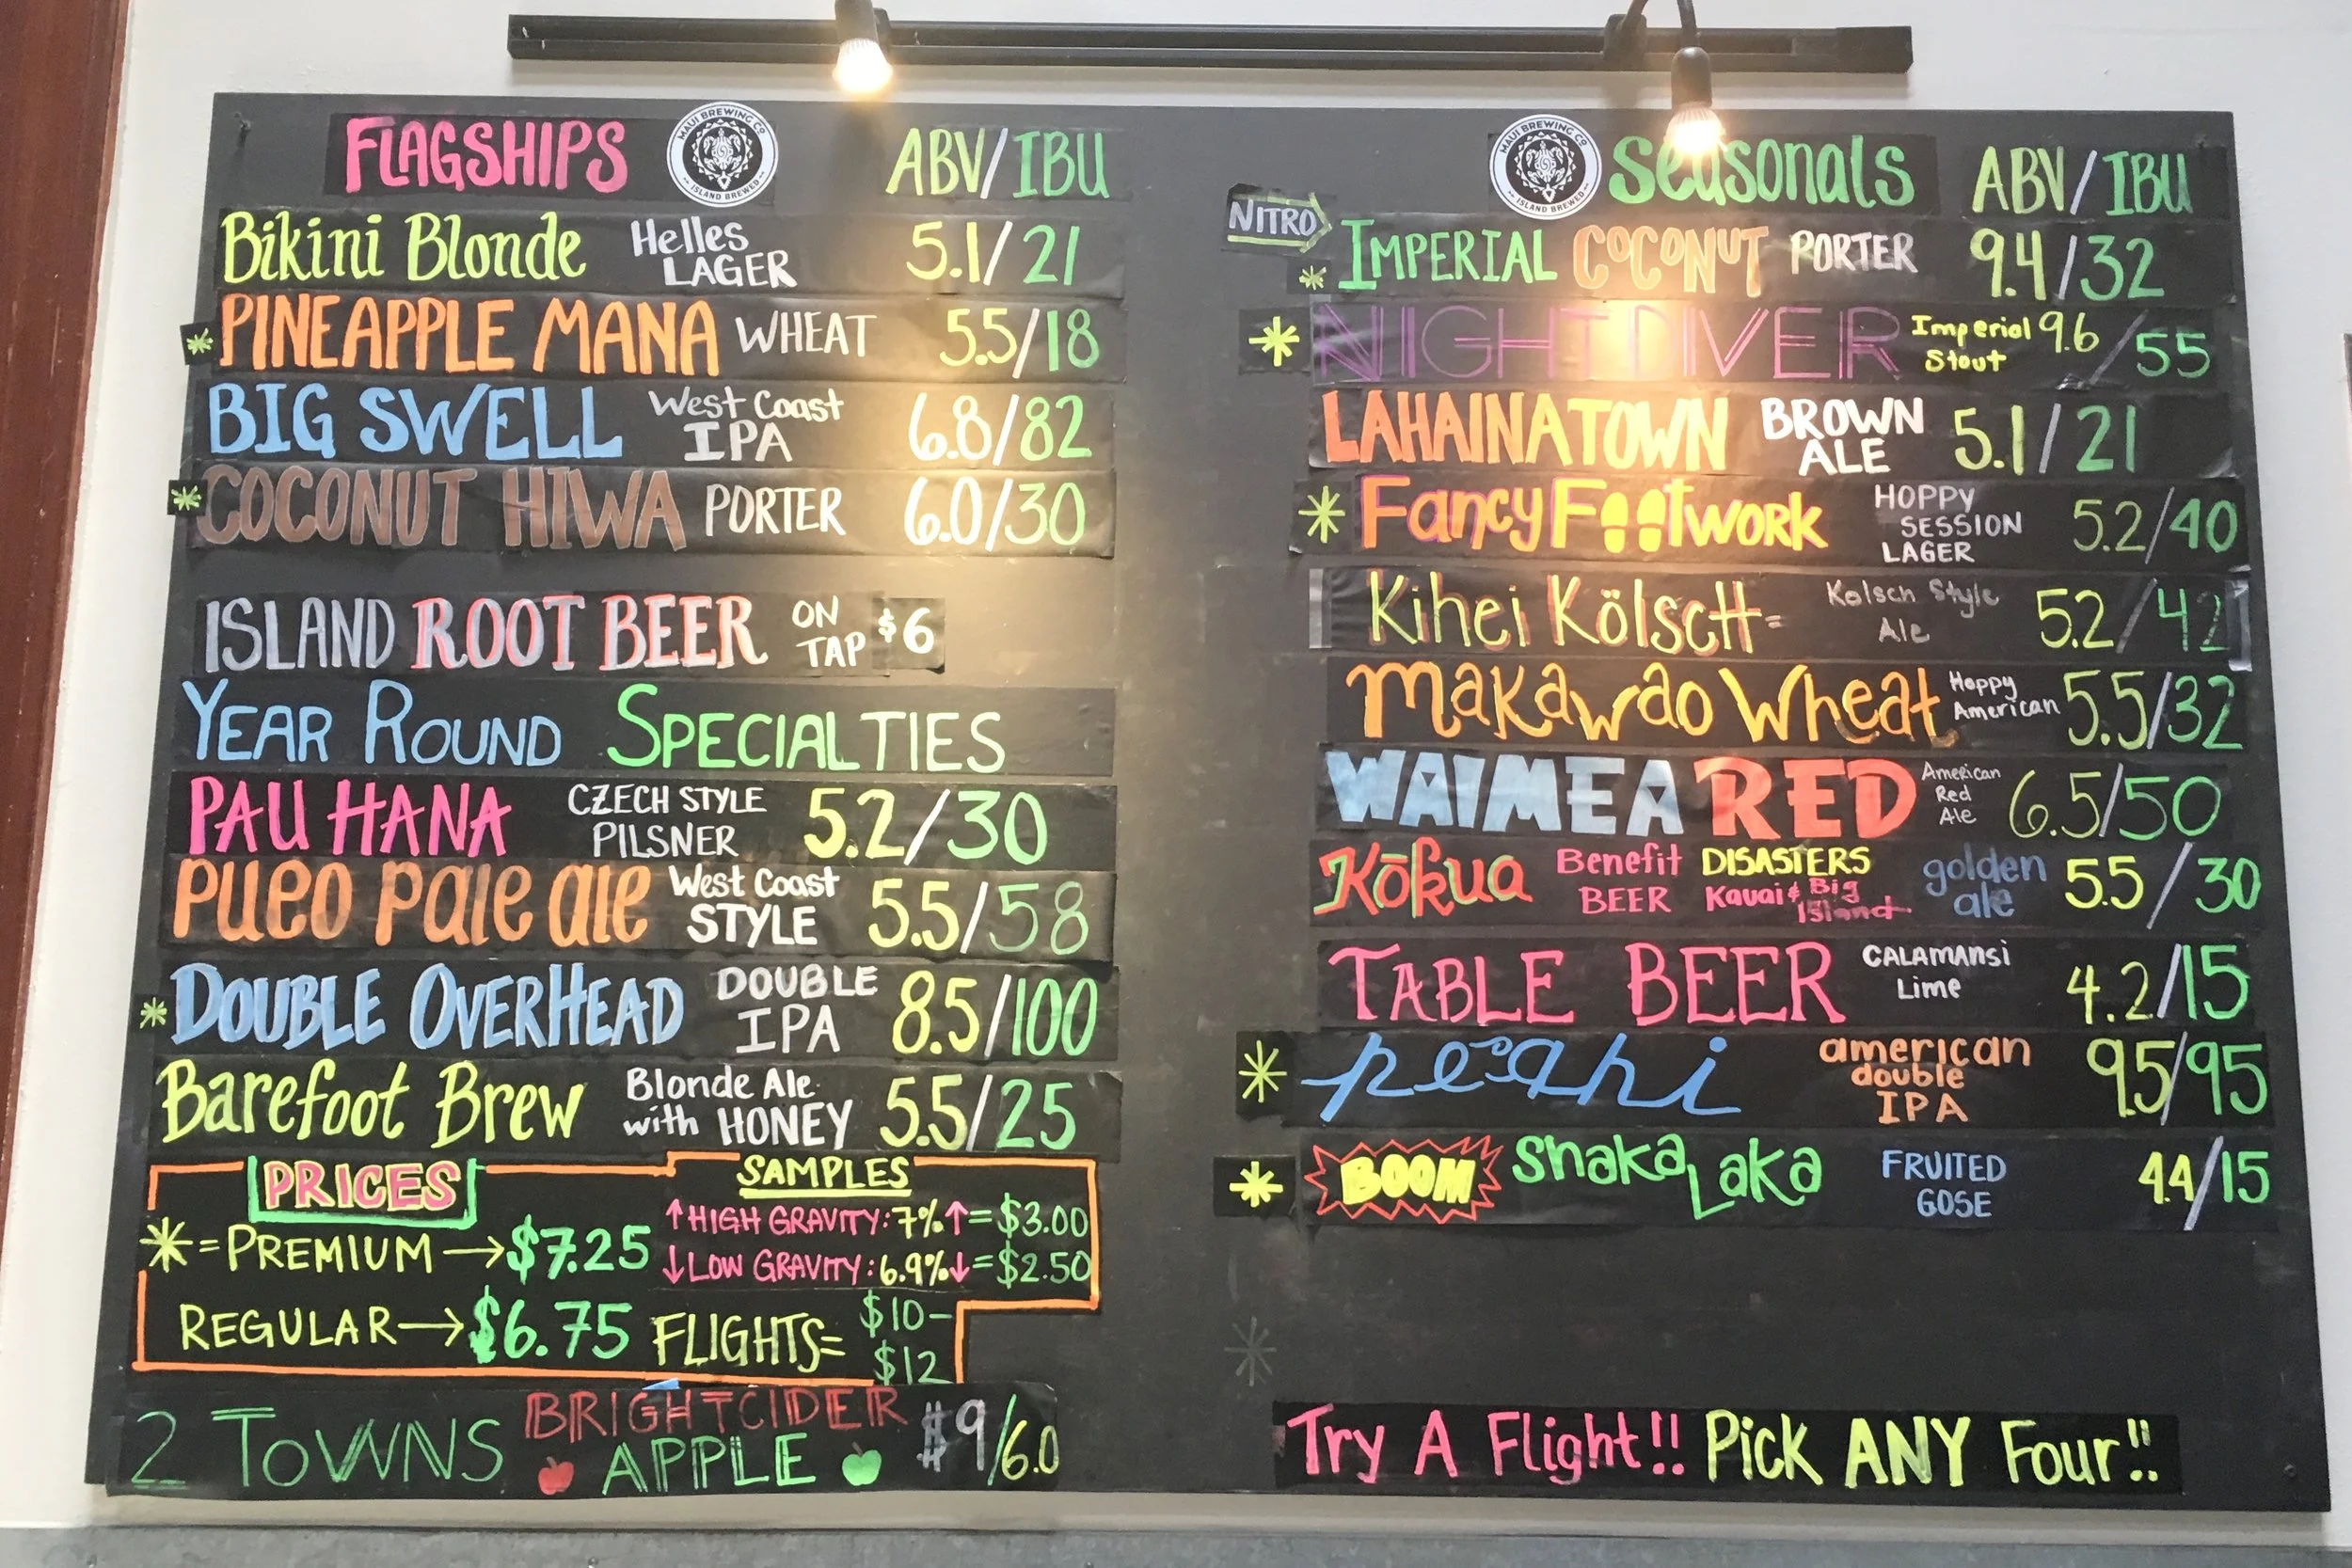 FLAGSHIPS MAUI BREWING CO ISLAND BREWED ABV/IBU
Bikini Blonde Helles LAGER 5.1/21
* PINEAPPLE MANA WHEAT 5.5/18
BIG SWELL West Coast IPA 6.8/82
* COCONUT HIWA PORTER 6.0/30
ISLAND ROOT BEER ON TAP $6
YEAR ROUND SPECIALTIES
PAU HANA CZECH STYLE PILSNER 5.2/30
PUEO PALE ALE West Coast STYLE 5.5/58
* DOUBLE OVERHEAD DOUBLE IPA 8.5/100
Barefoot Brew Blonde Ale with HONEY 5.5/25
PRICES
* = PREMIUM → $7.25
REGULAR → $6.75
SAMPLES
↑ HIGH GRAVITY: 7% ↑ = $3.00
↓ LOW GRAVITY: 6.9% ↓ = $2.50
FLIGHTS = $10-
$12
2 TOWNS BRIGHTCIDER APPLE $9/6.0
MAUI BREWING CO ISLAND BREWED Seasonals ABV/IBU
NITRO
* IMPERIAL COCONUT PORTER 9.4/32
* NIGHT DIVER Imperial Stout 9.6/55
LAHAINATOWN BROWN ALE 5.1/21
* Fancy Footwork HOPPY SESSION LAGER 5.2/40
Kihei Kölsch Kolsch Style Ale 5.2/42
Makawao Wheat Hoppy American 5.5/32
WAIMEA RED American Red Ale 6.5/50
Kōkua Benefit BEER DISASTERS Kauai & Big Island golden ale 5.5/30
TABLE BEER CALAMANSI Lime 4.2/15
* pe'ahi american double IPA 9.5/95
* BOOM Shaka Laka FRUITED GOSE 4.4/15
*
Try A Flight!! Pick ANY Four!!